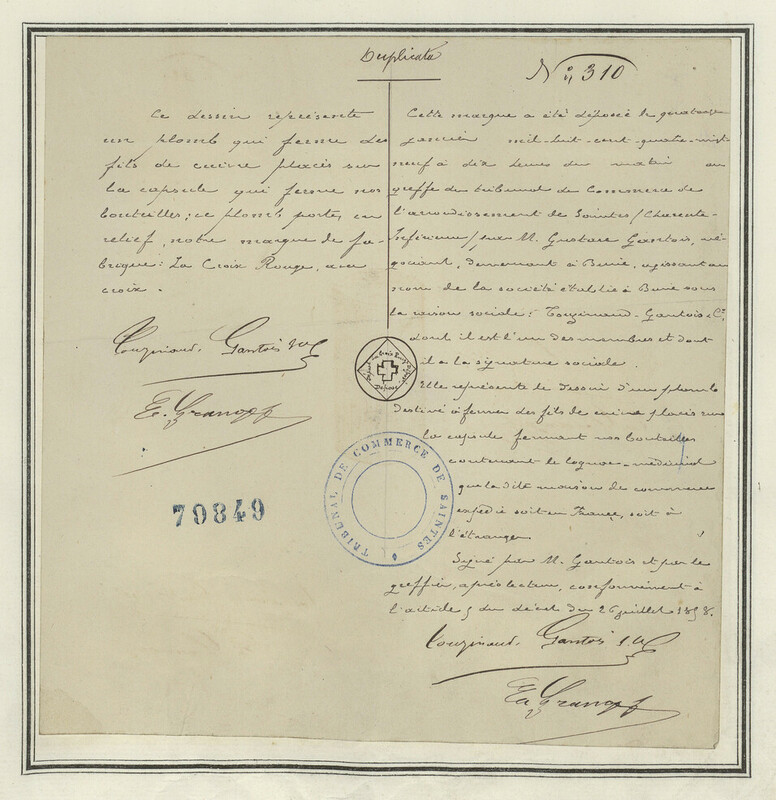 Duplicata
N° 310
Ce dessin représente
un plomb qui ferme des
fils de cuivre placés sur
la capsule qui ferme nos
bouteilles; ce plomb porte, en
relief, notre marque de fa-
brique: La Croix Rouge, une
croix.
Touzinaud, Gantois & Cie
Cette marque a été déposée le quatorze
janvier mil-huit-cent-quatre-vingt-
neuf à dix heures du matin au
greffe du tribunal de Commerce de
l'arrondissement de Saintes (Charente-
Inférieure) par M. Gustave Gantois, né-
gociant, demeurant à Burie, agissant au
nom de la société établie à Burie sous
la raison sociale: Touzinaud-Gantois & Cie
dont il est l'un des membres et dont
il a la signature sociale.
Elle représente le dessin d'un plomb
destiné à fermer des fils de cuivre placés sur
la capsule fermant nos bouteilles
contenant le cognac-médicinal
que la dite maison de commerce
expédie soit en France, soit à
l'étranger.
Signé par M. Gantois et par le
greffier, après lecture, conformément à
l'article 5 du décret du 26 juillet 1858.
Touzinaud, Gantois & Cie
Déposé
TRIBUNAL DE COMMERCE DE SAINTES
70849